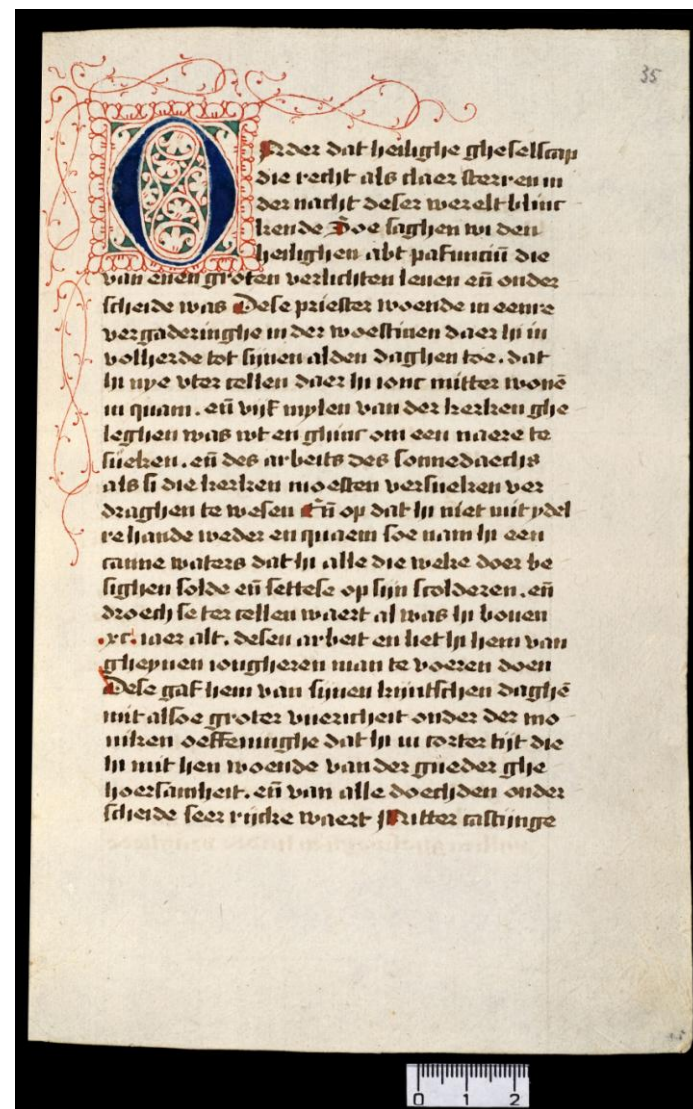 35
ONder dat heilighe gheselscap
die recht als claer sterren in
der nacht deser werelt blinc
kende Doe saghen wi den
heilighen abt pafunciū die
van enen groten verlichten leuen eñ onder
scheide was Dese priester woende in eenre
vergaderinghe in der woestinen daer hi in
volherde tot sijnen alden daghen toe. dat
hi nye vter cellen daer hi ionc mitter wonē
in quam. eñ vijf mylen van der kerken ghe
leghen was wt en ghinc om een naere te
sueken. eñ des arbeits des sonnedaechs
als si die kerken moesten versueken ver
draghen te wesen Eñ op dat hi niet mit ydel
re hande weder en quaem soe nam hi een
canne waters dat hi alle die weke doer be
sighen solde eñ settese op sijn scolderen. eñ
droech se ter cellen waert al was hi bouen
.xc. iaer alt. desen arbeit en liet hi hem van
gheynen iougheren man te voeren doen
Dese gaf hem van sijnen kijntschen daghē
mit alsoe groter vuericheit onder der mo
niken oeffeninghe dat hi in corter tijt die
hi mit hen woende van der gueder ghe
hoersamheit. eñ van alle doechden onder
scheide seer rijcke waert Mitter castijnge
0 1 2